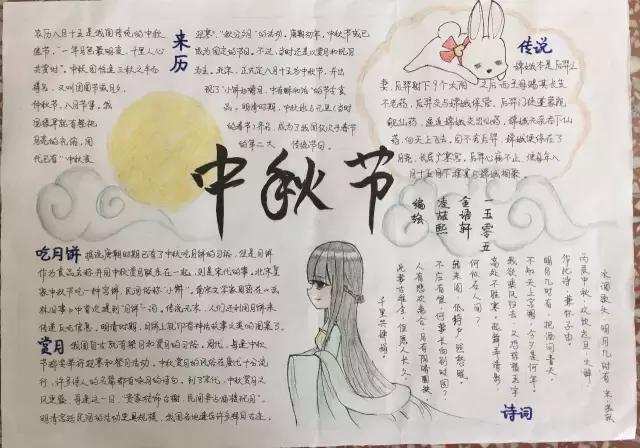 来历
农历八月十五是我国传统的中秋
佳节。"一年月色最明夜，千里人心
共赏时"。中秋因恰值三秋之半而
得名，又叫团圆节或月夕、
仲秋节、八月节等。我
国很早就有祭祀
月亮的礼俗，周
代已有"中秋夜
迎寒"、"秋分夕月"的活动。唐朝初年，中秋节成已
成为固定的节日。不过，当时还是以赏月和祝月
为主。北宋，正式定八月十五为中秋节，并出
现了"小饼如嚼月，中有酥和饴"的节令食
品。明清时期，中秋已与元旦(当时
的春节)齐名，成为了我国仅次于春节
的第二大传统节日。
传说
嫦娥本是后羿之
妻，后羿射下9个太阳
老药，后羿交与嫦娥保管。
仙药，逼迫嫦娥交出仙药，嫦娥无奈吞下仙
药，向天上飞去。因不舍后羿，嫦娥便停在了
月亮，长居广寒宫。后羿心痛不止，便每年八
月十五月下摆宴与嫦娥相聚。
中秋节
一五零五
金语轩
凌喆熙
编绘
吃月饼
据说唐朝时期已有了中秋吃月饼的习俗，但是月饼
作为食品名称并同中秋赏月联系在一起，则是宋代的事。北宋皇
家中秋节吃一种宫饼，民间俗称"小饼"。南宋文学家周密在《武
林旧事》中首次提到"月饼"一词。传说元末，人们还利用月饼来
传递反元信息。明清时期，月饼上就印有神话故事之类的图案了。
赏月
我国自古就有祭月和赏月的习俗。周代，每逢中秋
节都要举行迎寒和祭月活动。中秋赏月的风俗在唐代十分流
行，许多诗人的名篇都有咏月的诗句。到了宋代，中秋赏月之
风更盛，每逢这一日，"贵家结饰台榭，民间争占酒楼玩月"。
明清宫廷民间的活动更具规模，我国各地遗存许多拜月古迹。
水调歌头 明月几时有 宋·苏轼
丙辰中秋，欢饮达旦，大醉，
作此诗，兼怀子由。
明月几时有，把酒问青天。
不知天上宫阙，今夕是何年。
我欲乘风归去，又恐琼楼玉宇，
高处不胜寒。起舞弄清影，
何似在人间？
转朱阁，低绮户，照无眠。
不应有恨，何事长向别时圆？
人有悲欢离合，月有阴晴圆缺，
此事古难全。但愿人长久，
千里共婵娟。
诗词